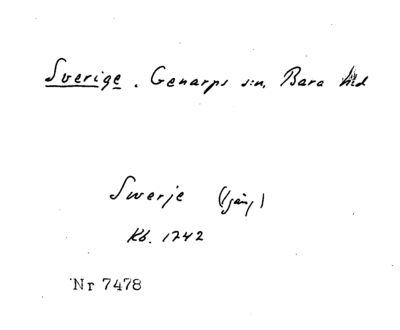 Sverige. Genarps s:n, Bara hd
Swerje (1 gång)
Kb. 1742
Nr 7478